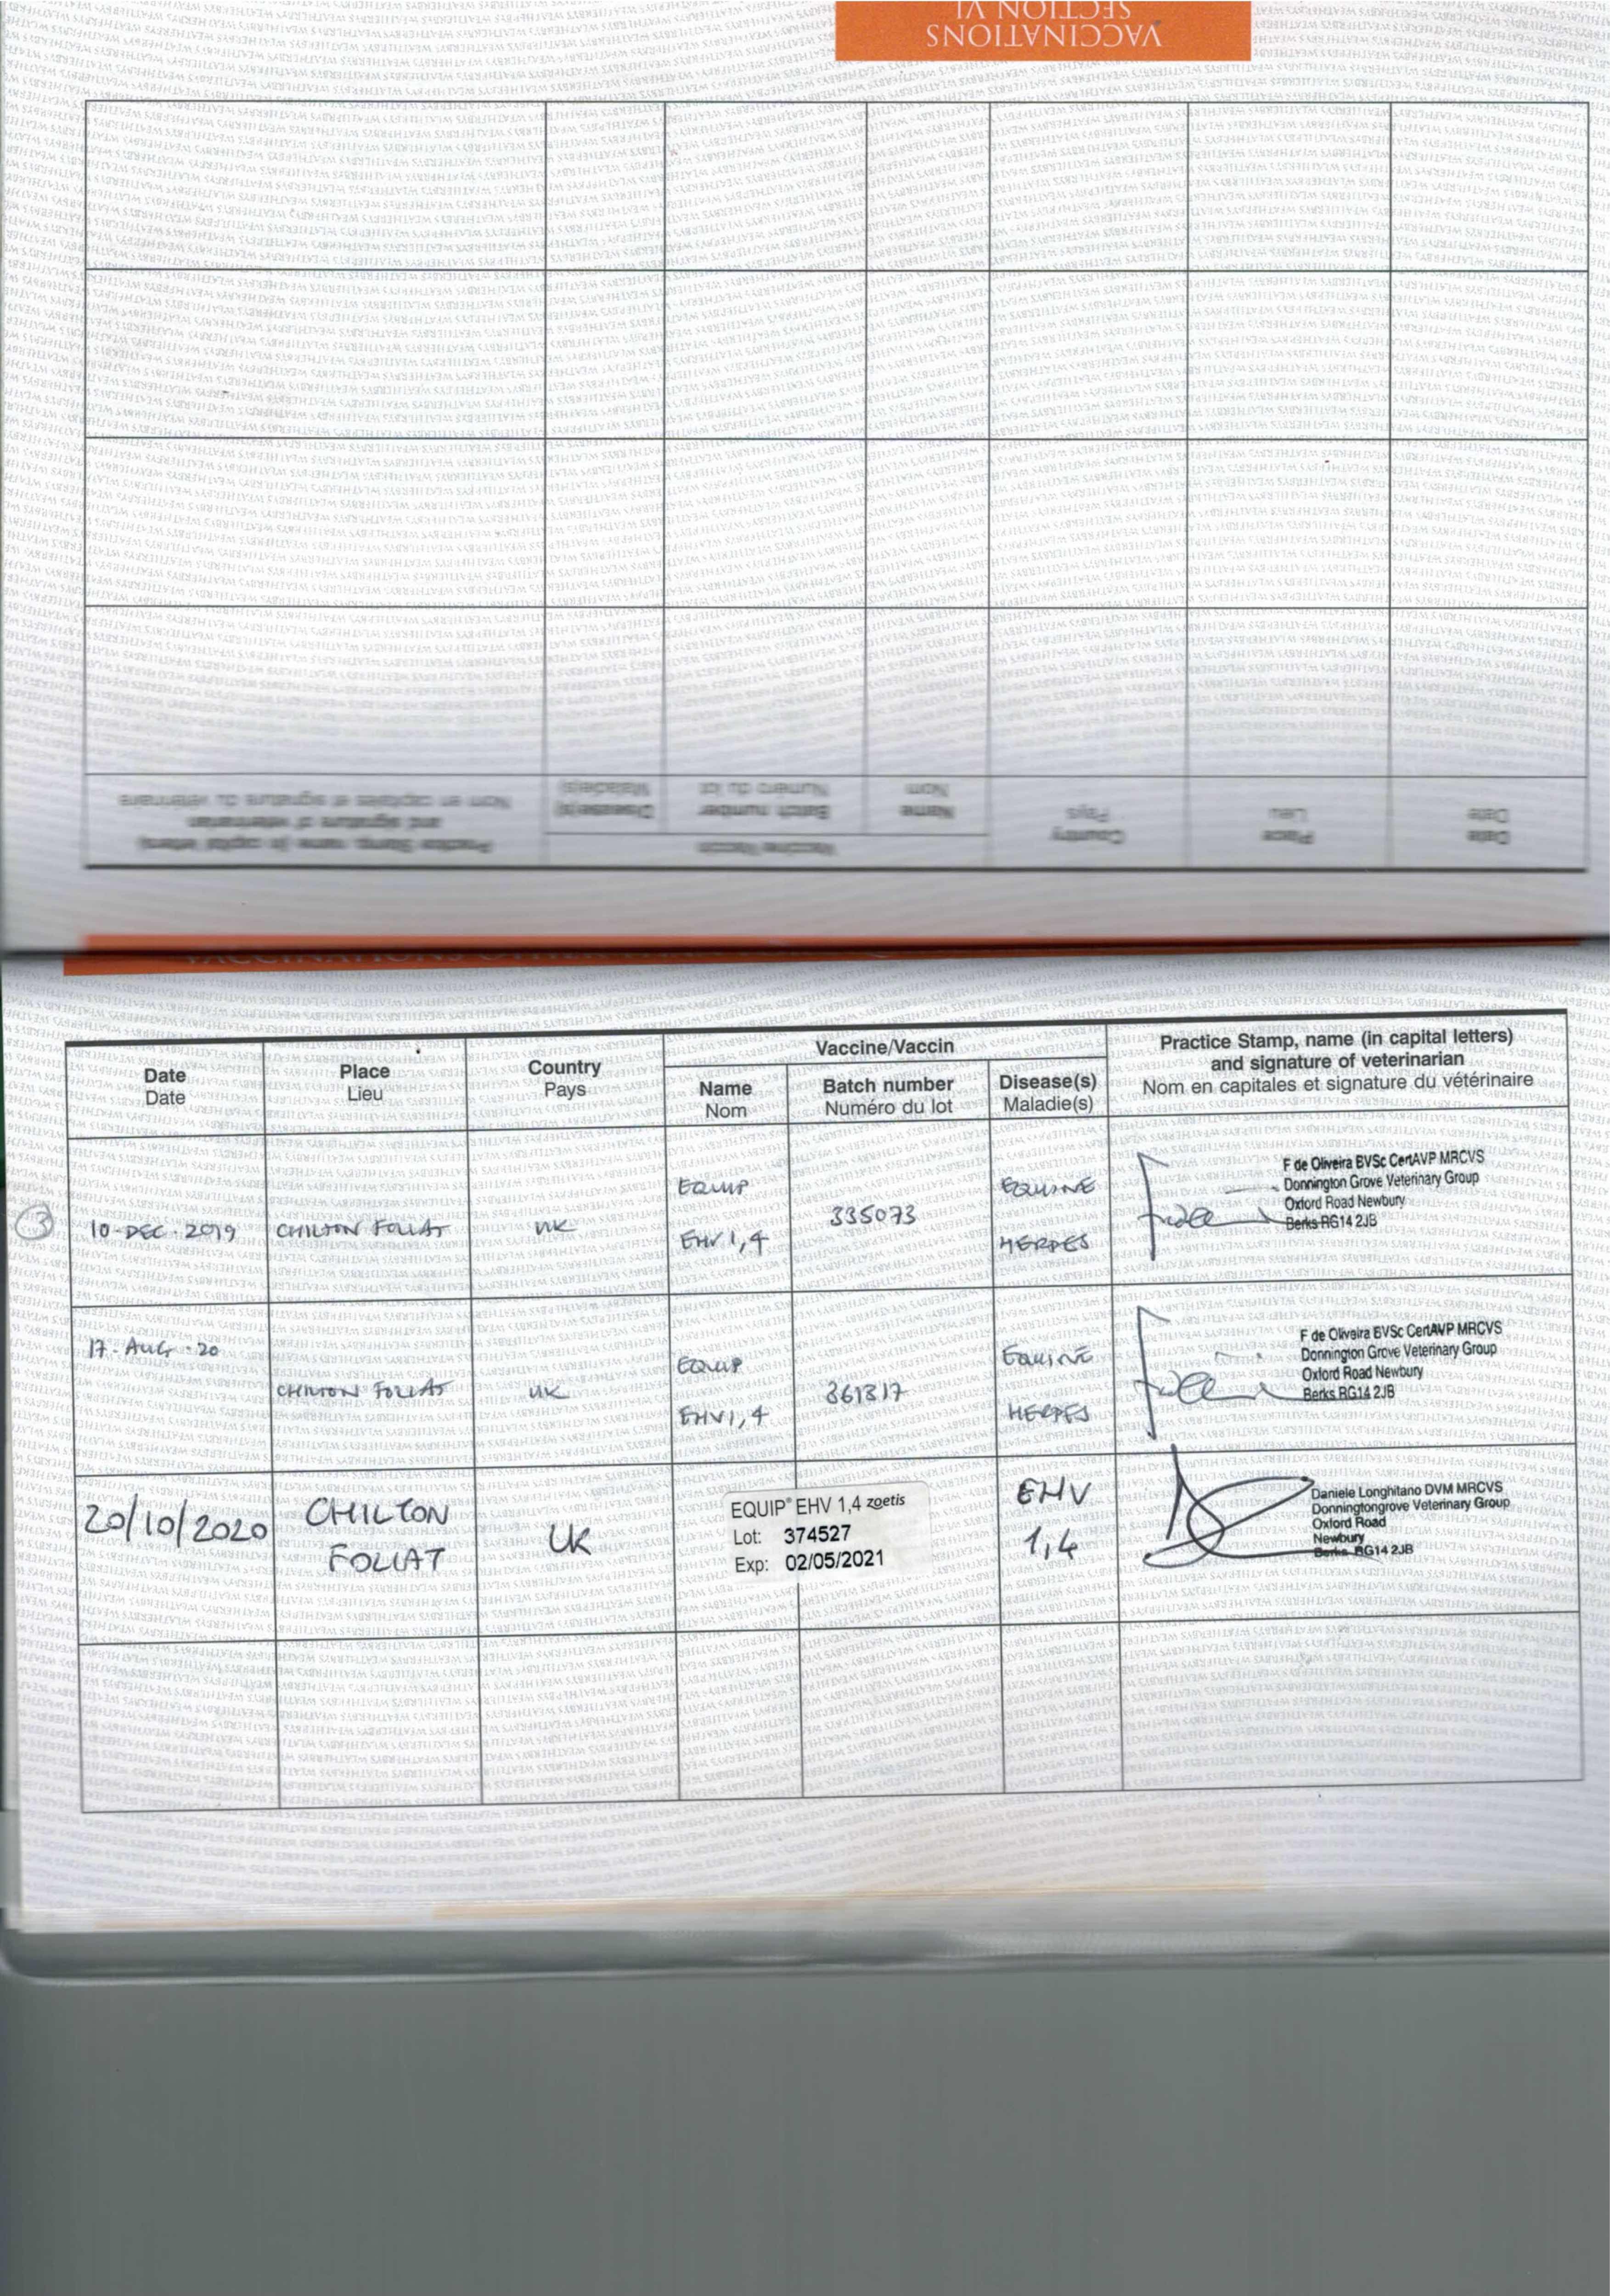 VACCINATIONS
SECTION VI
Date
Date
Place
Lieu
Country
Pays
Vaccine/Vaccin
Name
Nom
Batch number
Numéro du lot
Disease(s)
Maladie(s)
Practice Stamp, name (in capital letters)
and signature of veterinarian
Nom en capitales et signature du vétérinaire
Date
Date
Place
Lieu
Country
Pays
Vaccine/Vaccin
Name
Nom
Batch number
Numéro du lot
Disease(s)
Maladie(s)
Practice Stamp, name (in capital letters)
and signature of veterinarian
Nom en capitales et signature du vétérinaire
3
10-DEC-2019
CHILTON FOLIAT
UK
EQUIP
EHV 1,4
335073
EQUINE
HERPES
F de Oliveira BVSc CertAVP MRCVS
Donnington Grove Veterinary Group
Oxford Road Newbury
Berks RG14 2JB
17-AUG-20
CHILTON FOLIAT
UK
EQUIP
EHV 1,4
361317
EQUINE
HERPES
F de Oliveira BVSc CertAVP MRCVS
Donnington Grove Veterinary Group
Oxford Road Newbury
Berks RG14 2JB
20/10/2020
CHILTON
FOLIAT
UK
EQUIP® EHV 1,4 zoetis
Lot: 374527
Exp: 02/05/2021
EHV
1,4
Daniele Longhitano DVM MRCVS
Donningtongrove Veterinary Group
Oxford Road
Newbury
Berks RG14 2JB